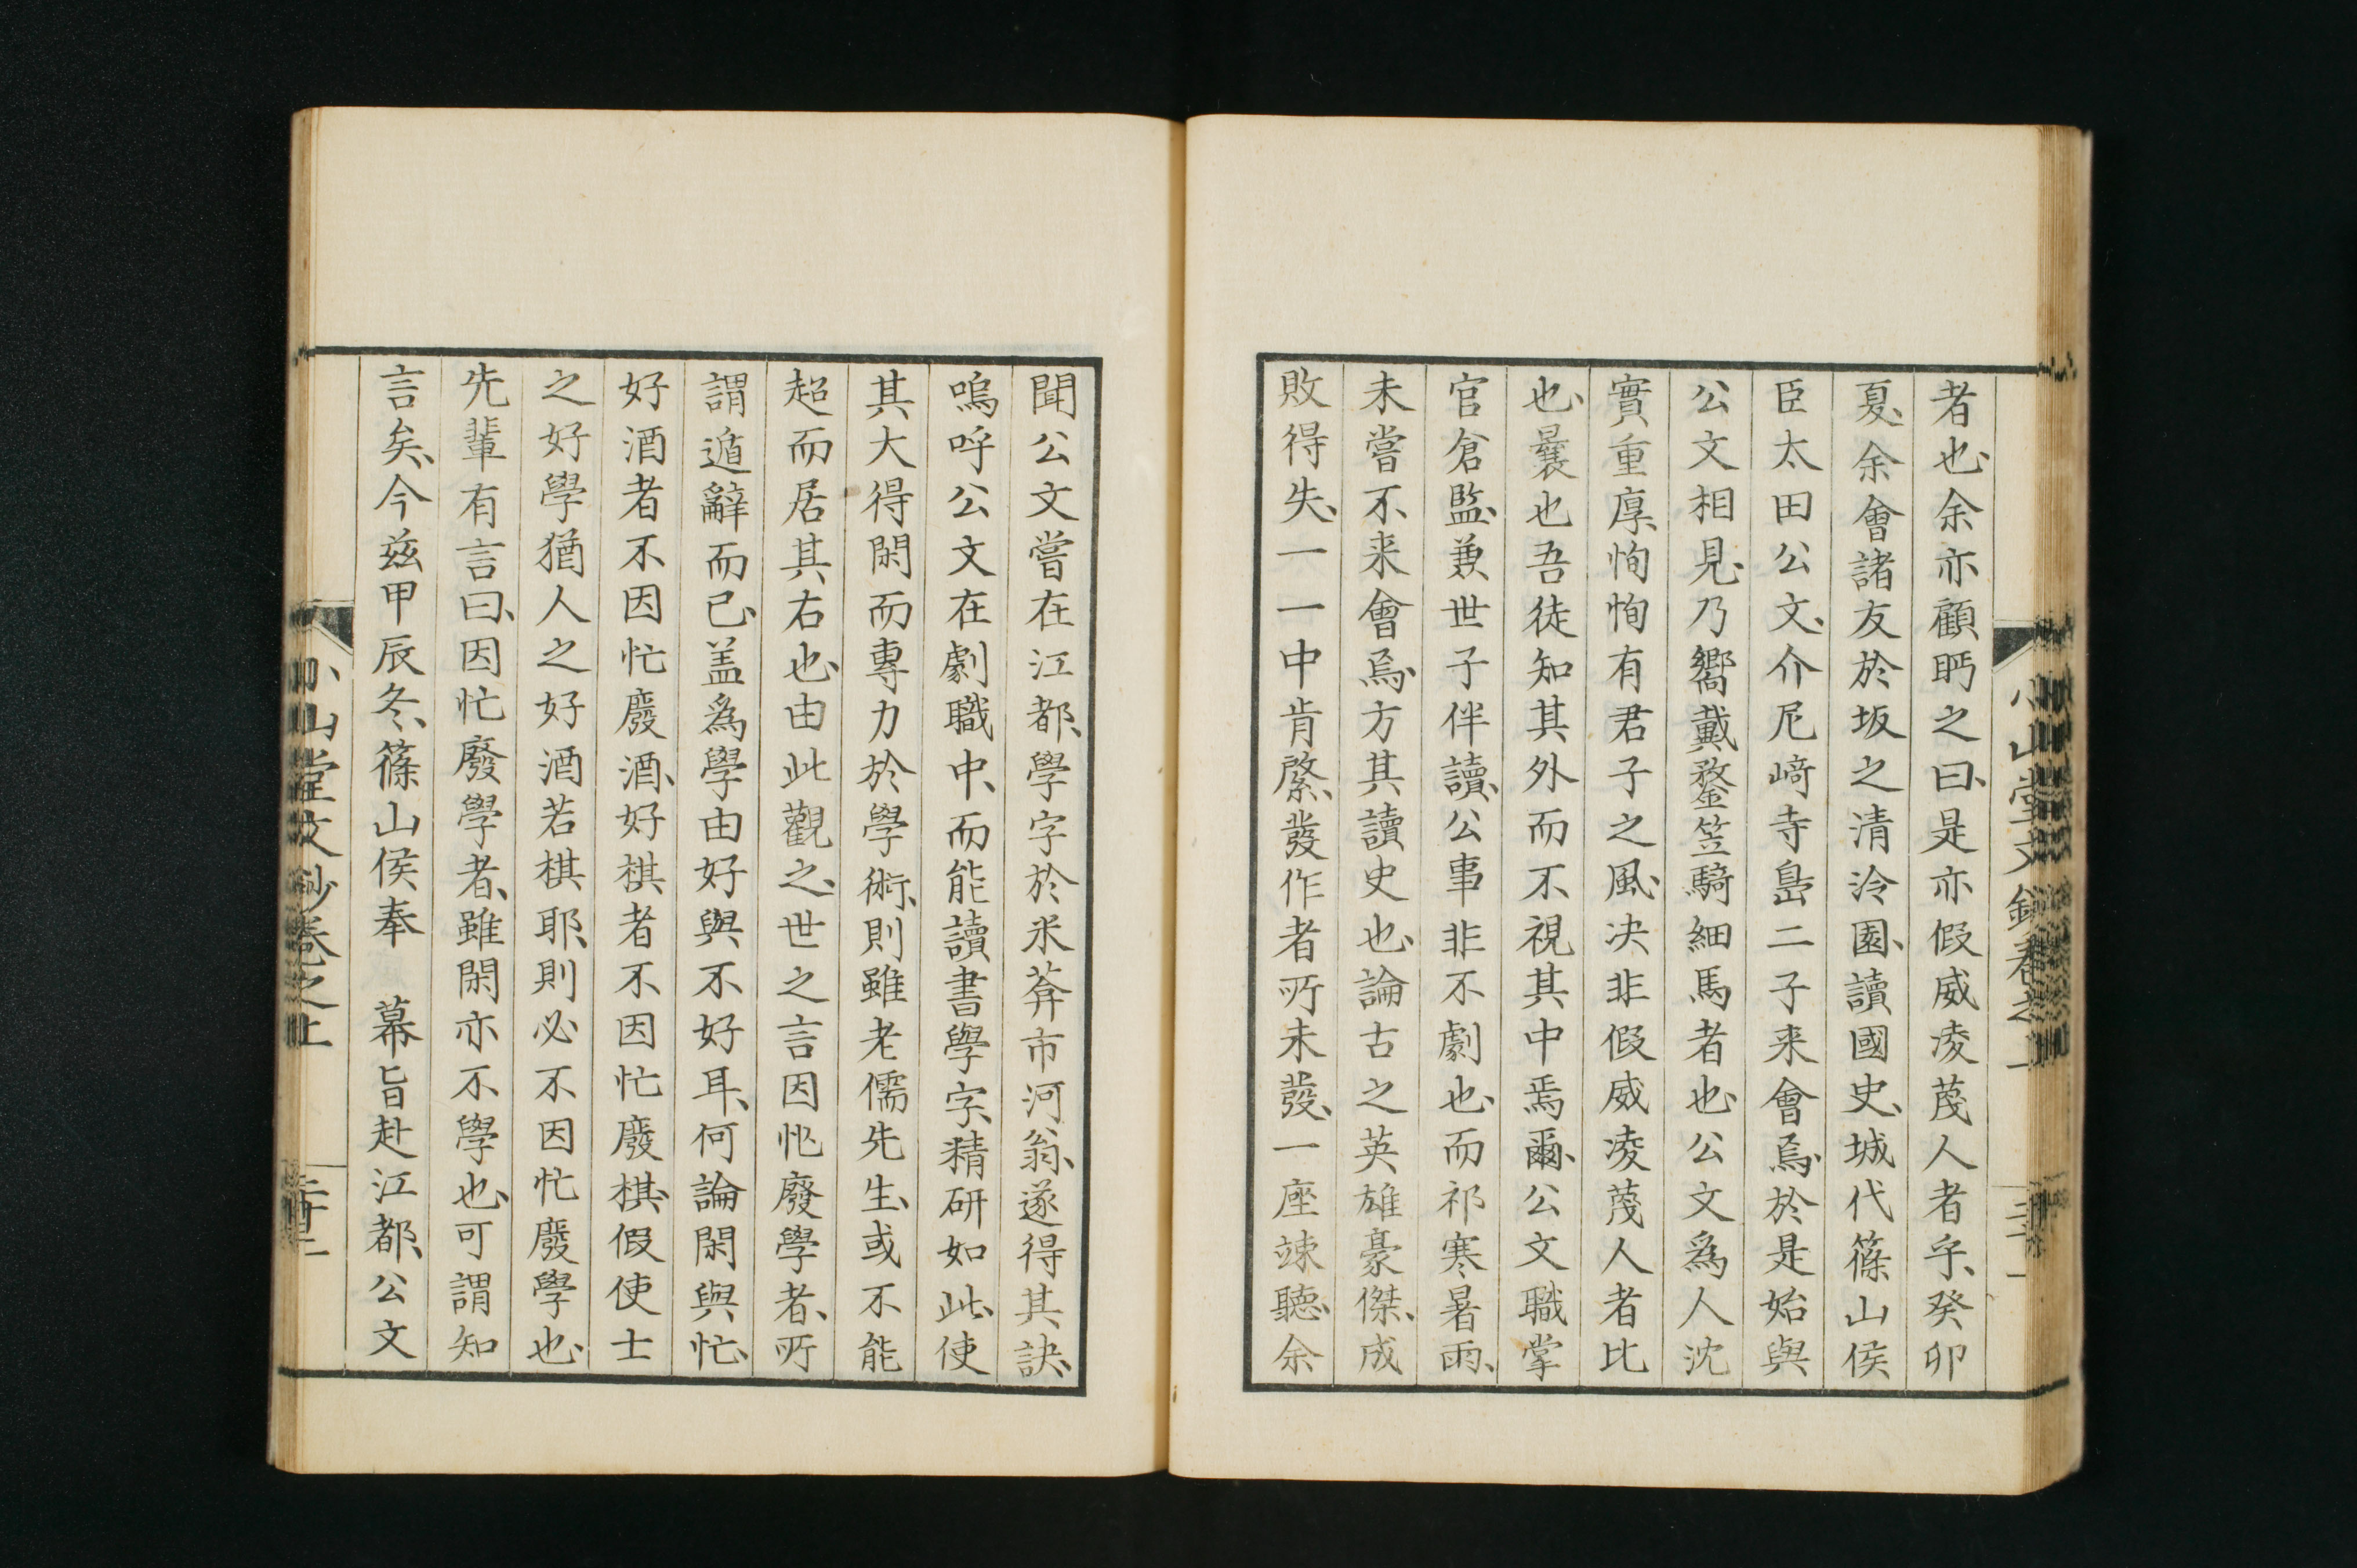 者也、余亦顧眄之曰、是亦假威凌蔑人者乎、癸卯
夏、余會諸友於坂之清泠園、讀國史、城代篠山侯
臣太田公文、介尼﨑寺島二子来會焉、於是始與
公文相見、乃嚮戴鍪笠騎細馬者也、公文爲人沈
實重厚、恂恂有君子之風、决非假威凌蔑人者比
也、曩也吾徒知其外而不視其中焉爾、公文職掌
官倉監、兼世子伴讀、公事非不劇也、而祁寒暑雨、
未嘗不来會焉、方其讀史也、論古之英雄豪傑、成
敗得失、一一中肯綮、發作者所未發、一座竦聽、余
聞公文嘗在江都、學字於米葊市河翁、遂得其訣、
嗚呼公文在劇職中、而能讀書學字、精研如此、使
其大得閑而專力於學術、則雖老儒先生、或不能
超而居其右也、由此觀之、世之言因忙廢學者、所
謂遁辭而已、盖爲學由好與不好耳、何論閑與忙、
好酒者不因忙廢酒、好棋者不因忙廢棋、假使士
之好學猶人之好酒若棋耶、則必不因忙廢學也、
先輩有言曰、因忙廢學者、雖閑亦不學也、可謂知
言矣、今茲甲辰冬、篠山侯奉　幕旨赴江都、公文
小山堂文鈔卷之上